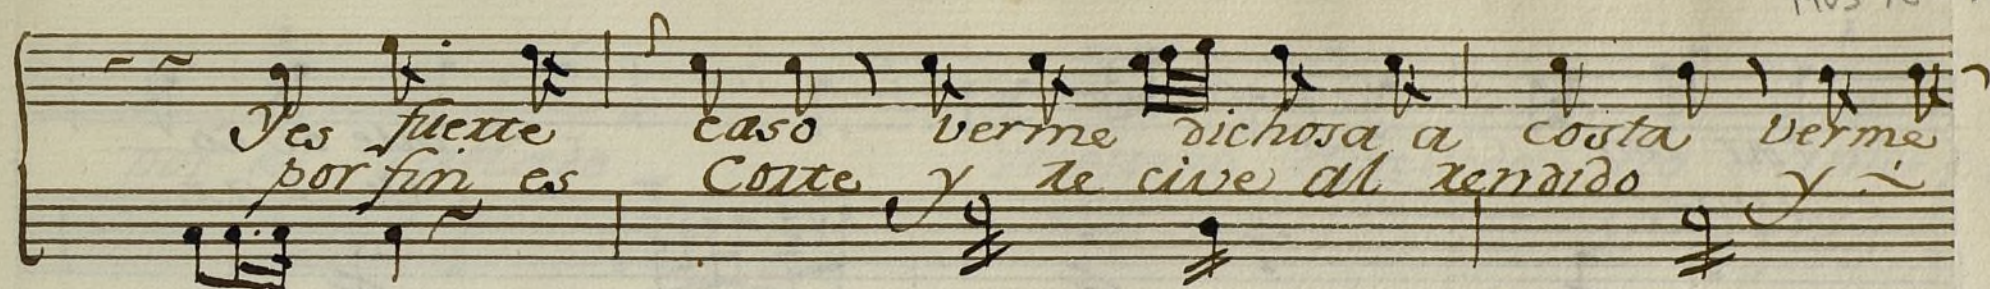 Yes fuerte caso verme dichosa a costa verme
por fin es Corte y re cive al rendido y